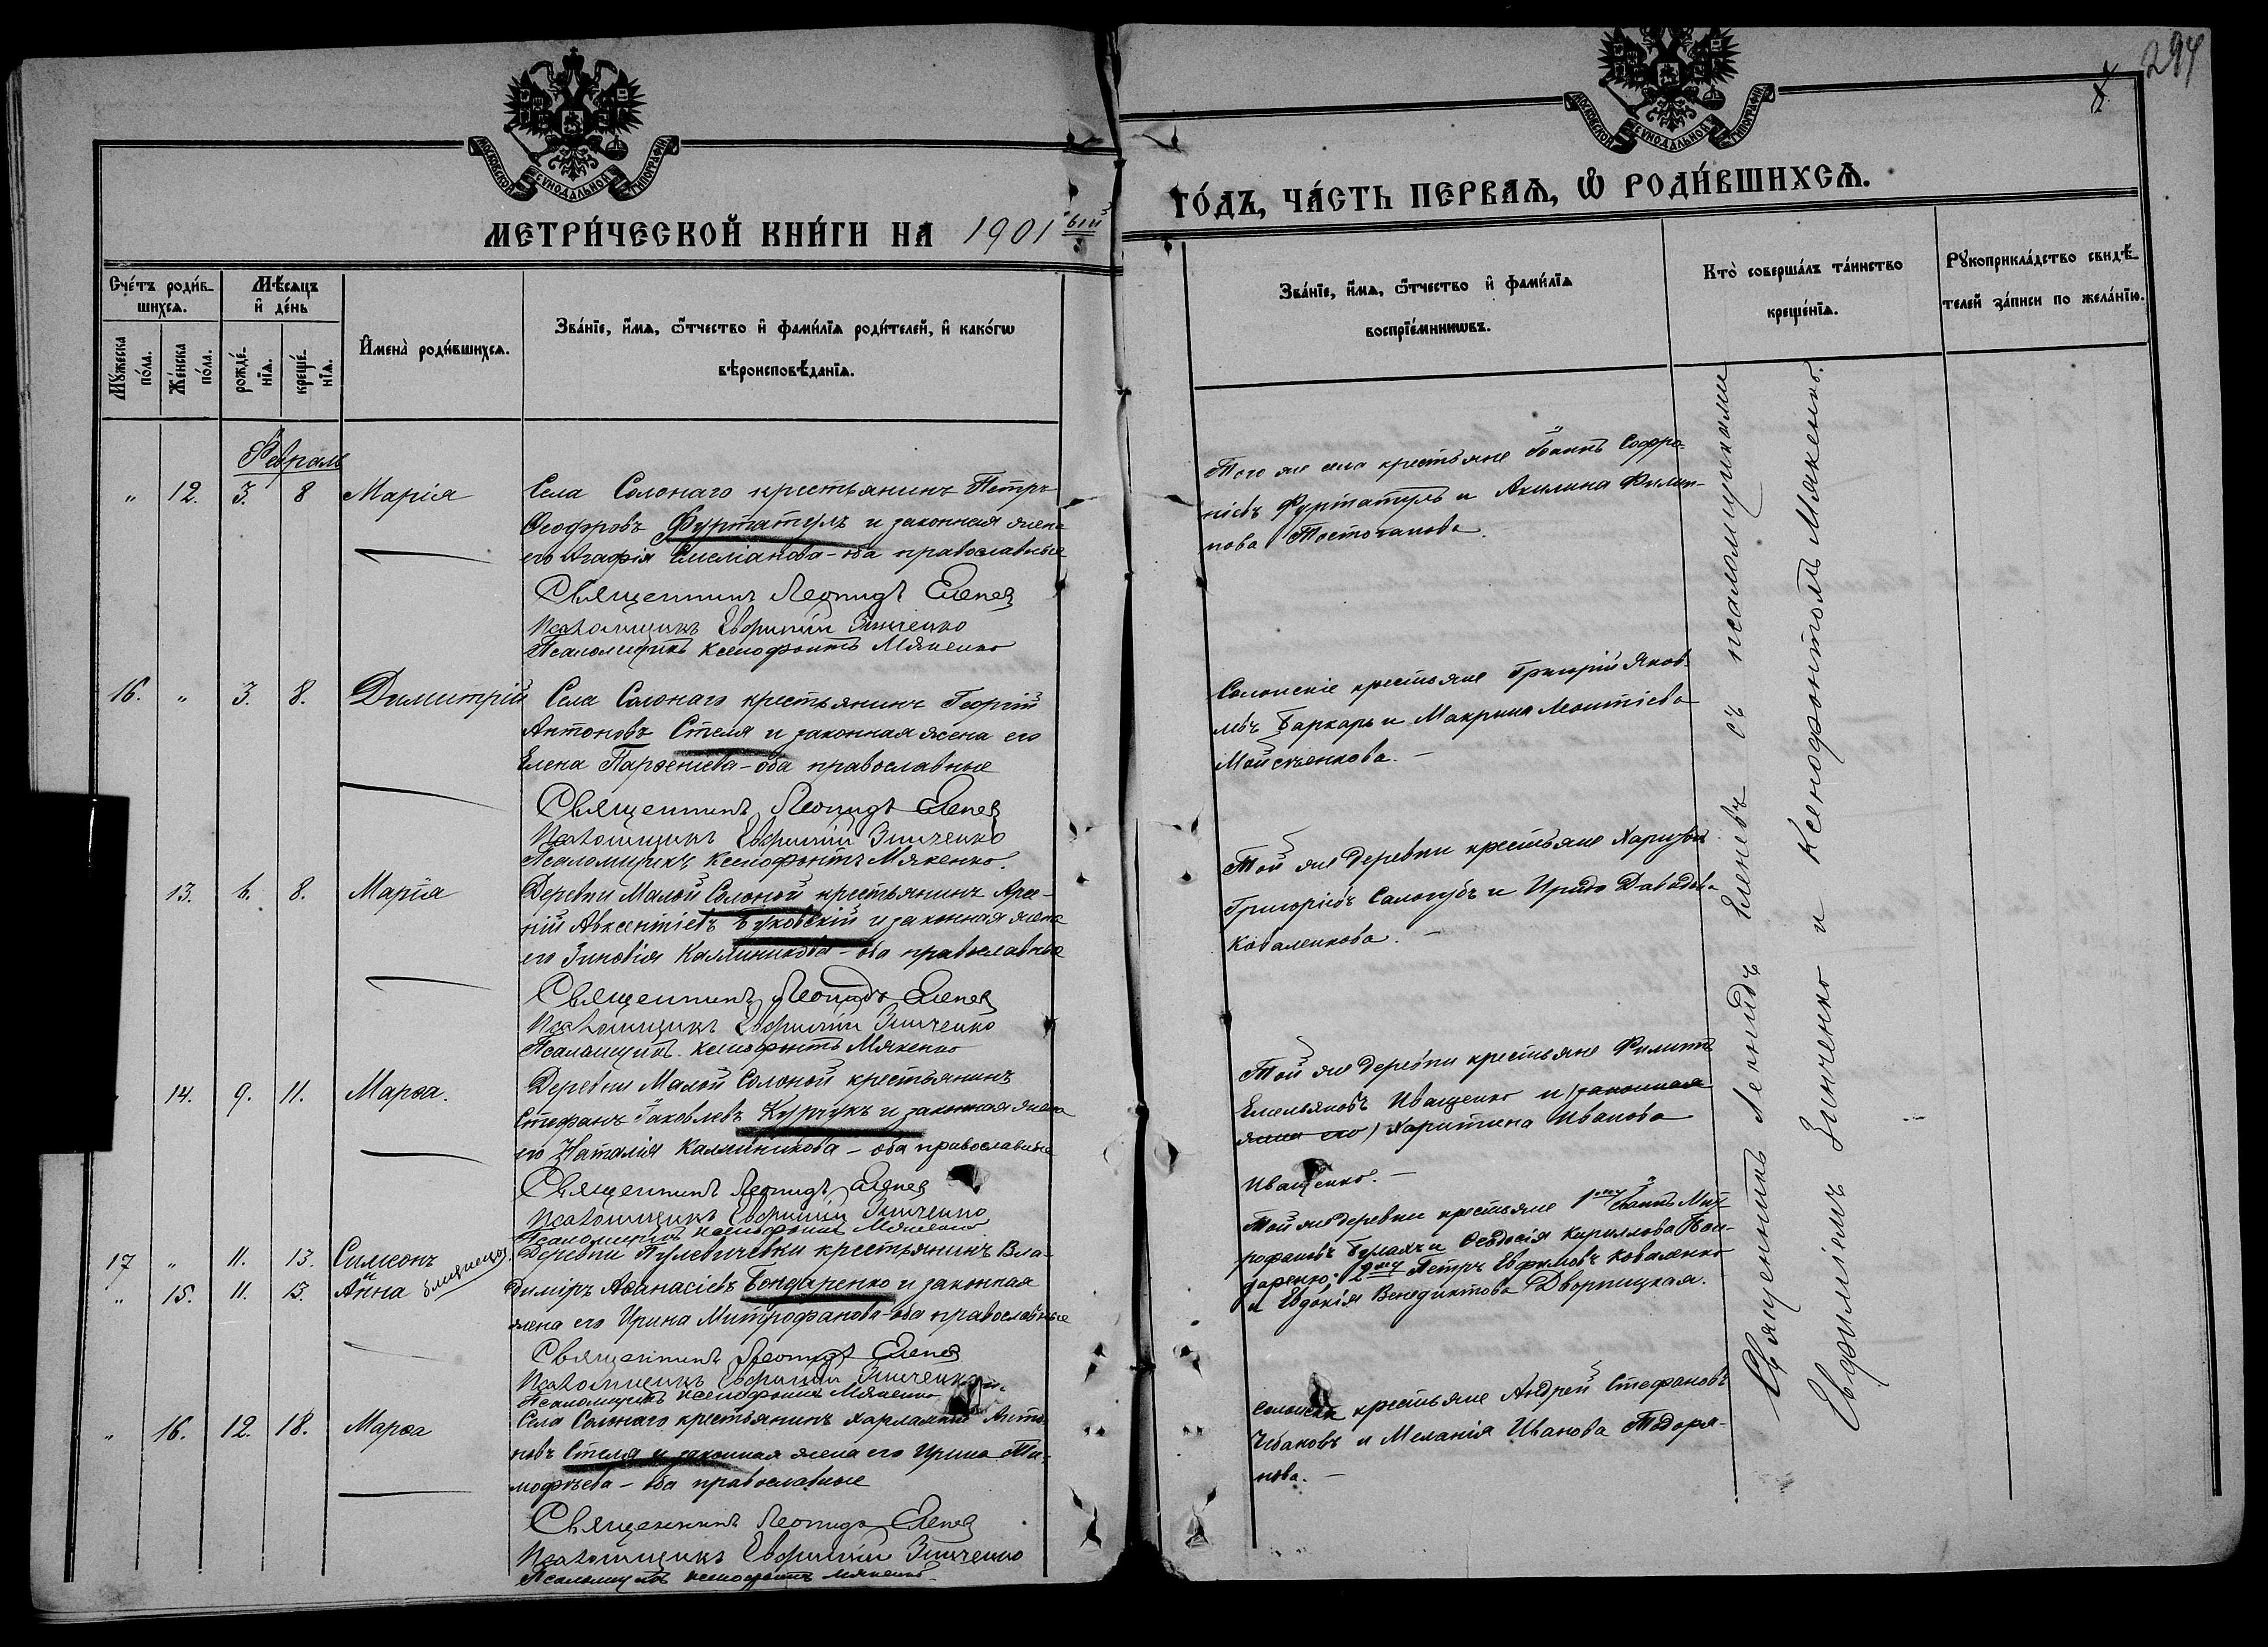 294
МОСКОВСКОЙ СѴНОДАЛЬНОЙ ТИПОГРАФІИ
МОСКОВСКОЙ СѴНОДАЛЬНОЙ ТИПОГРАФІИ
МЕТРИ́ЧЕСКОЙ КНИ́ГИ НА 1901 ый
ГО́ДЪ, ЧА́СТЬ ПЕРВАѦ, Ѽ РОДИ́ВШИХСѦ.
Сче́тъ роди́в-
шихсѧ.
Мꙋ́жеска
по́ла.
Же́нска
по́ла.
Мѣ́сѧцъ
и҆ де́нь
рожде́-
нїѧ.
креще́-
нїѧ.
И҆мена̀ роди́вшихсѧ.
Зва́нїе, и҆́мѧ, ѻ҆́тчество и҆ фами́лїѧ роди́телей, и҆ како́гѡ
вѣроисповѣ́данїѧ.
Зва́нїе, и҆́мѧ, ѻ҆́тчество и҆ фами́лїѧ
воспрїе́мникѡвъ.
Кто̀ соверша́лъ та́инство
креще́нїѧ.
Рꙋкоприкла́дство свидѣ́-
телей за́писи по жела́нїю.
Февраль
" 12. 3. 8 Марія
Села Солонаго крестьянинъ Петръ
Ѳеодоровъ Фуртатулъ и законная жена
его Агафія Емеліанова - оба православные
Священникъ Леонидъ Еленев
Псаломщикъ Евфимій Зинченко
Псаломщикъ Ксенофонтъ Мякенко
Того же села крестьяне Іоаннъ Софро-
ніевъ Фуртатулъ и Акилина Филип-
пова
16. " 3. 8. Димитрій
Села Солонаго крестьянинъ Георгій
Антоновъ Стеля и законная жена его
Елена Парѳеніева - оба православные
Священникъ Леонидъ Еленев
Псаломщикъ Евфимій Зинченко
Псаломщикъ Ксенофонтъ Мякенко.
Солонскіе крестьяне Григорій Яков-
левъ Баркарь и Макрина Леонтіева
13. 6. 8. Марія
Деревни Малой Солоной крестьянинъ Арсе-
ній Авксентіевъ Буковскій и законная жена
его Зиновія Каллиникова - оба православные
Священникъ Леонидъ Еленев
Псаломщикъ Евфимій Зинченко
Псаломщикъ Ксенофонтъ Мякенко
Той же деревни крестьяне
Григоріевъ Сологубъ и Ирида Давидова
Коваленкова. -
14. 9. 11. Марѳа.
Деревни Малой Солоной крестьянинъ
Стефанъ Іаковлевъ Курчукъ и законная жена
его Наталія Каллиникова - оба православные
Священникъ Леонидъ Еленев
Псаломщикъ Евфимій Зинченко
Псаломщикъ Ксенофонтъ Мякенко
Той же деревни крестьяне Филиппъ
Емельяновъ Иващенко и (законная
жена его) Харитина Иванова
Иващенко. -
17 " 11. 13. Симеонъ
и близнецы.
" 15. 11. 13. Анна
Деревни Пулевичевки крестьянинъ Вла-
димиръ Аѳанасіевъ Бондаренко и законная
жена его Ирина Митрофанова - оба православные
Священникъ Леонидъ Еленев
Псаломщикъ Евфимій Зинченко
Псаломщикъ Ксенофонтъ Мякенко
Той же деревни крестьяне 1му Іоаннъ Мит-
рофановъ и Ѳеодосія Кириллова Бон-
даренко; 2му Петръ Евфимовъ Коваленко
и Евдокія Венедиктова Дворницкая.
" 16. 12. 18. Марѳа
Села Солонаго крестьянинъ Харлампій Анто-
новъ Стеля и законная жена его Ирина Ти-
мофѣева - оба православные
Священникъ Леонидъ Еленев
Псаломщикъ Евфимій Зинченко
Псаломщикъ Ксенофонтъ Мякенко.
крестьяне Андрей Стефановъ
Чебановъ и Меланія Иванова Тодоря-
нова. -
Священникъ Леонидъ Еленевъ съ псаломщиками
Евфиміемъ Зинченко и Ксенофонтомъ Мякенко.